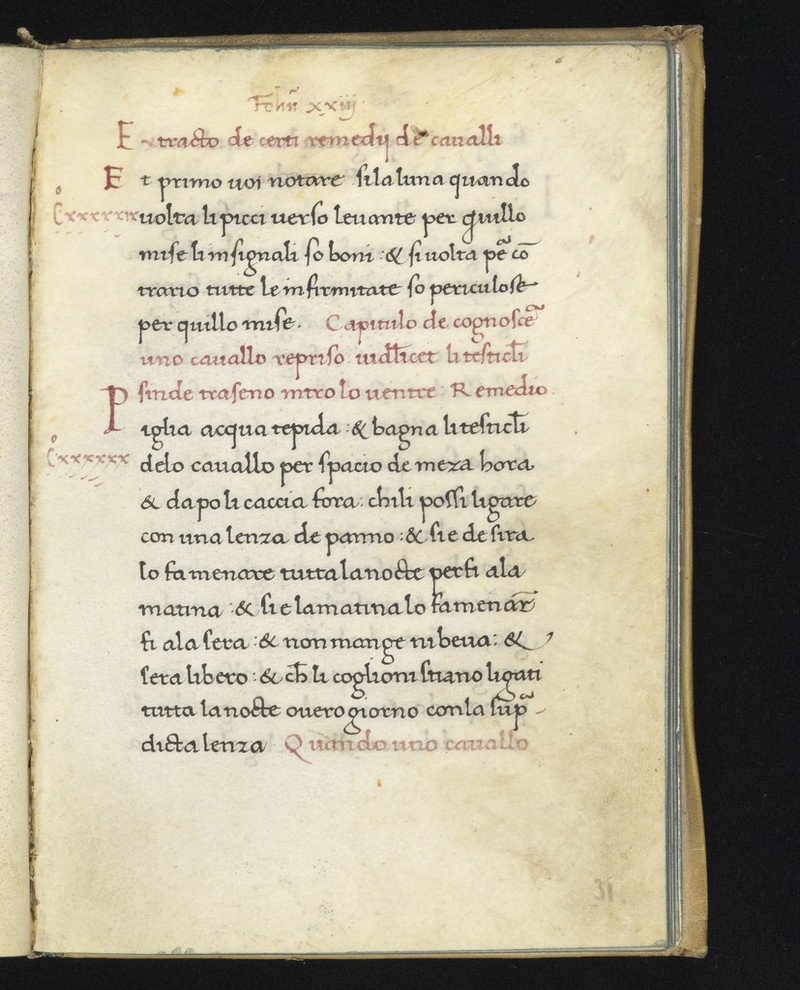 Folīj xxiij
Extracto de certi remedij de caualli
Et primo uoi notare si la luna quando
Cxxxxxix uolta li picci uerso leuante per quillo
mise li insignali so boni : & si uolta pe͂ cō
trario tutte le infirmitate so periculose
per quillo mise. Capitulo de cognosce͂
uno cauallo repriso uidl̄icet li testicl̄i
sinde traseno intro lo uentre Remedio.
Piglia acqua tepida : & bagna li testicl̄i
Cxxxxxx delo cauallo per spacio de meza hora
& dapo li caccia fora : chili possi ligare
con una lenza de panno : & si e de sira
lo fa menare tutta la nocte perfi ala
matina : & si e la matina lo fa menar̄
fi ala sera : & non mange ni beua : &
sera libero : & ch̄ li coglioni stiano ligati
tutta la nocte ouero giorno con la sup͂
dicta lenza Quando uno cauallo
31